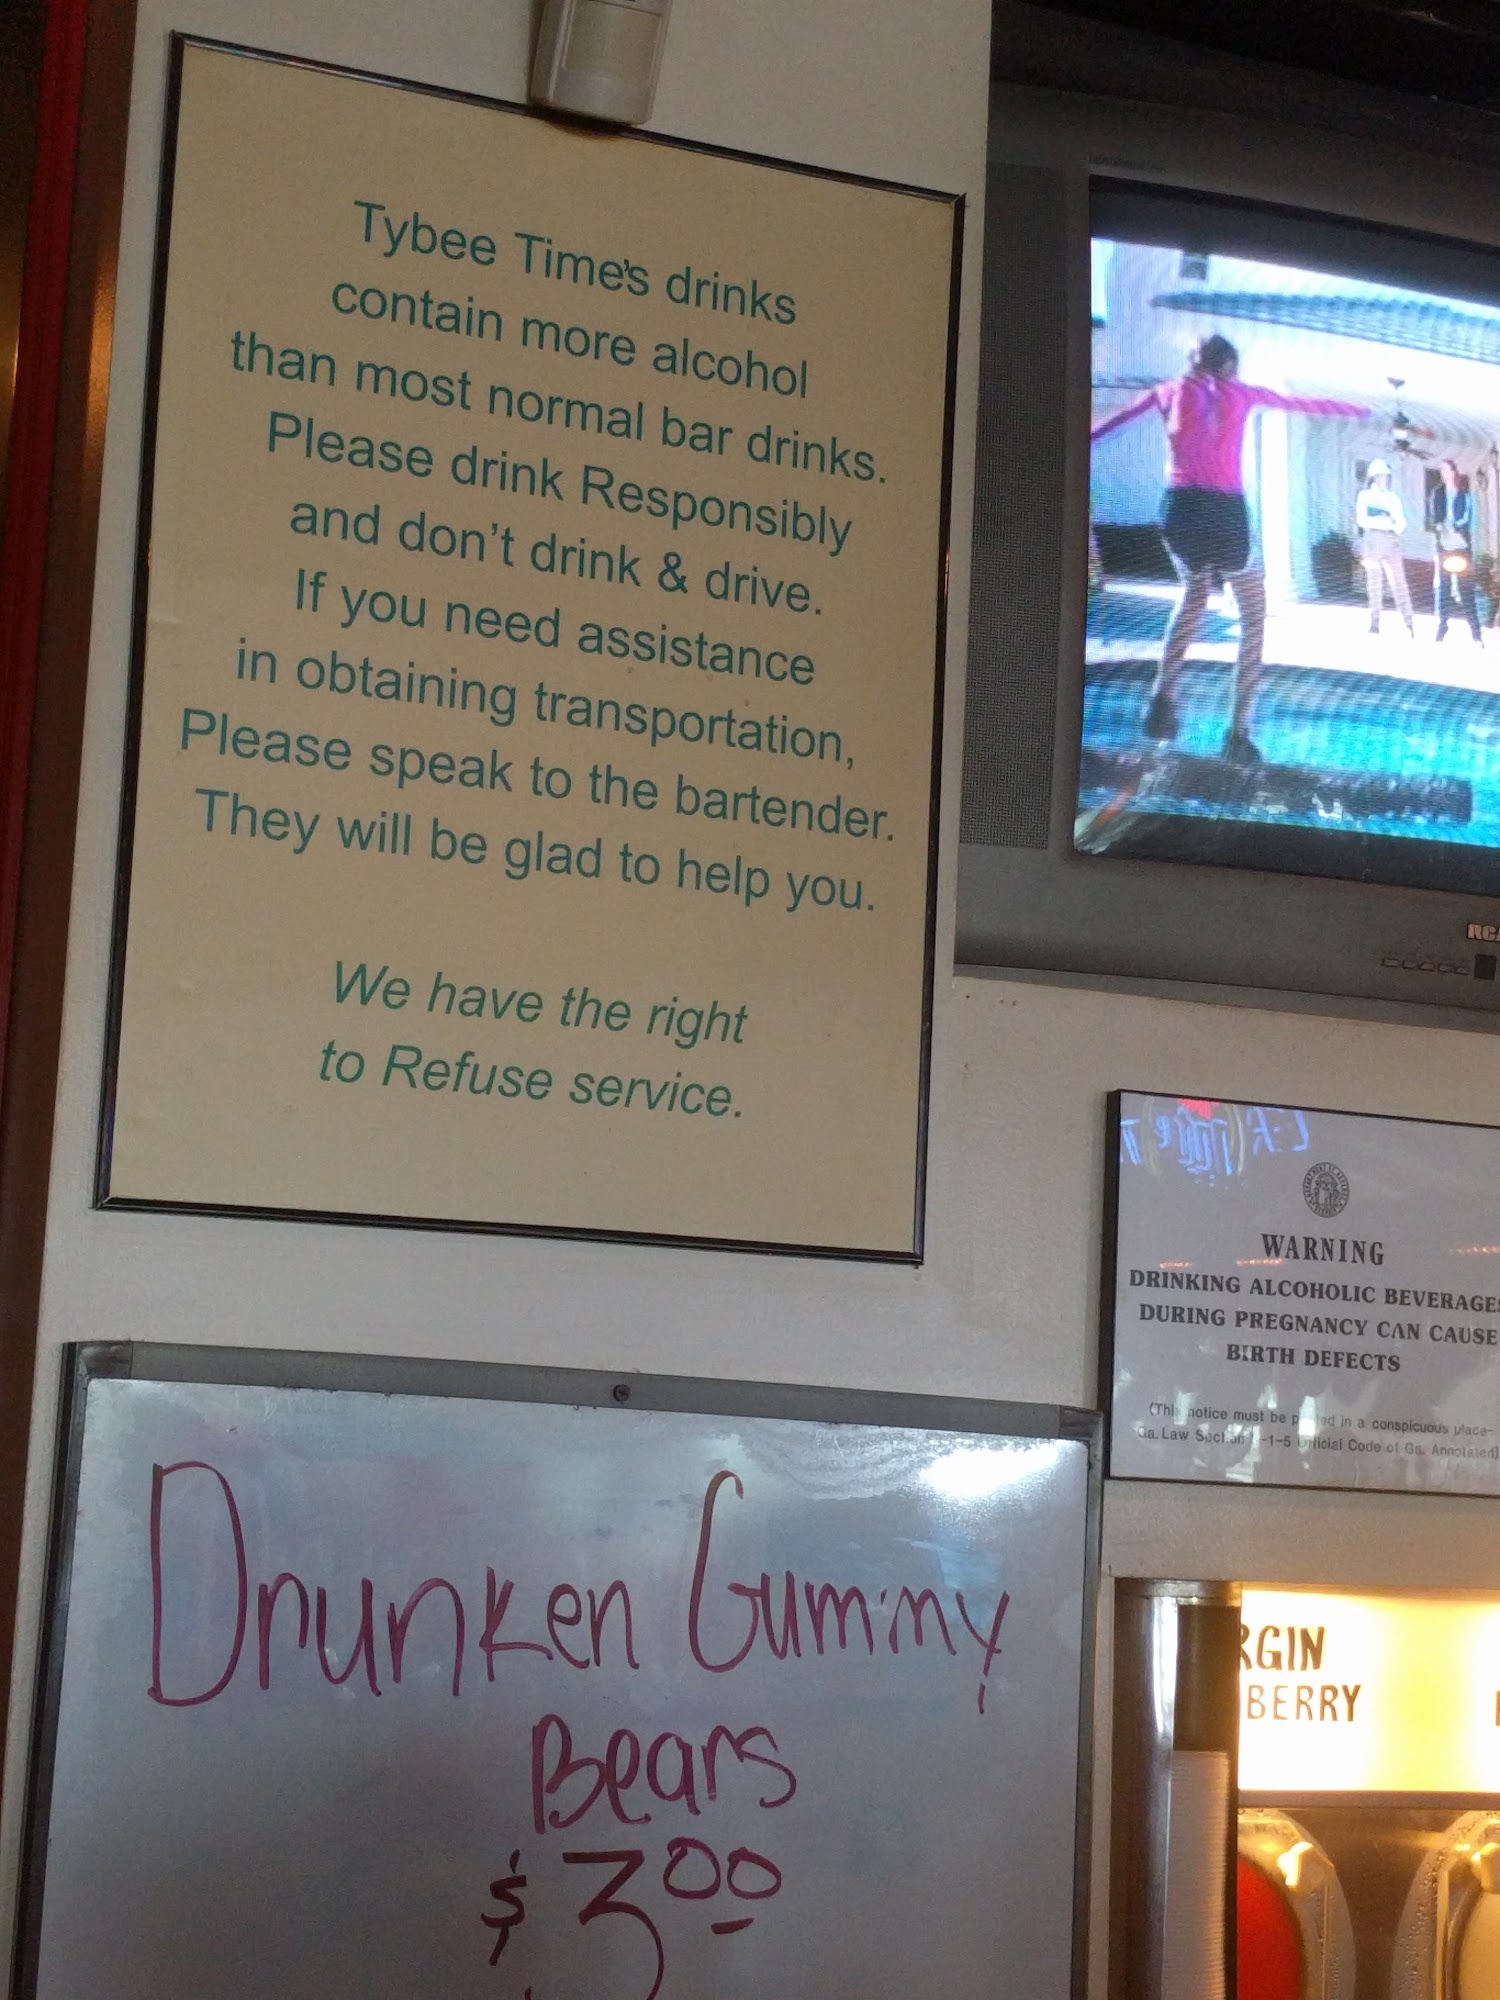 Tybee Time's drinks
contain more alcohol
than most normal bar drinks.
Please drink Responsibly
and don't drink & drive.
If you need assistance
in obtaining transportation,
Please speak to the bartender.
They will be glad to help you.
We have the right
to Refuse service.
RCA
WARNING
DRINKING ALCOHOLIC BEVERAGES
DURING PREGNANCY CAN CAUSE
BIRTH DEFECTS
(This notice must be posted in a conspicuous place-
Ga. Law Section -1-5 Official Code of Ga. Annotated)
Drunken Gummy
Bears
$3.00
RGIN
BERRY